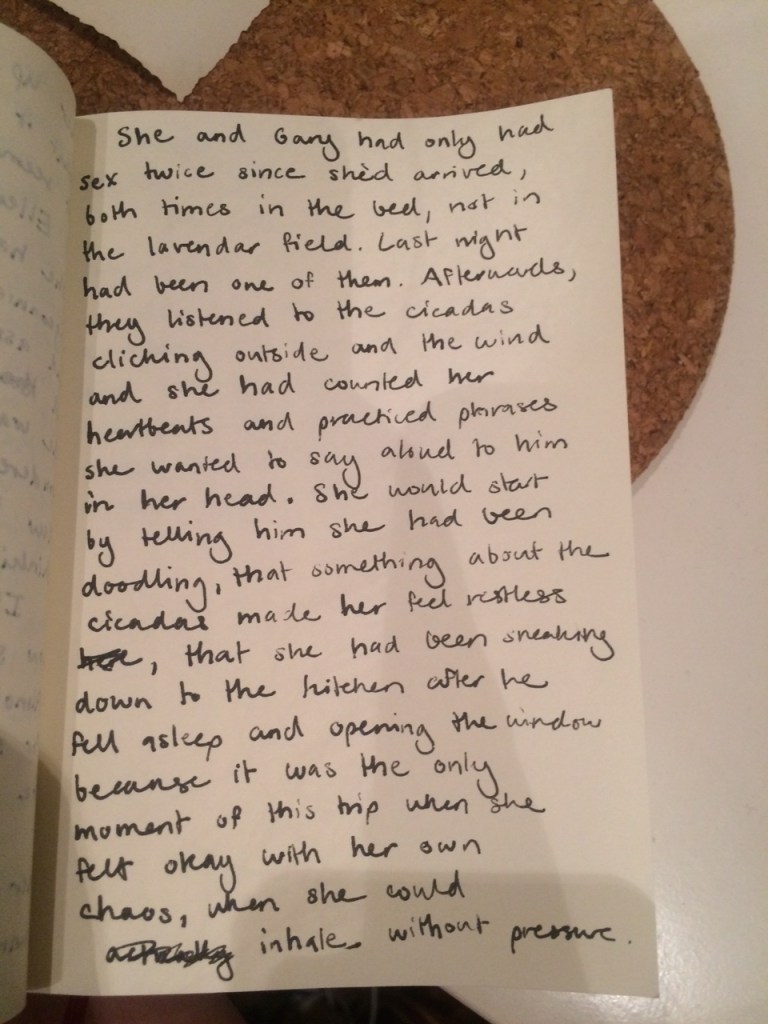 She and Gary had only had
sex twice since she'd arrived,
both times in the bed, not in
the lavendar field. Last night
had been one of them. Afterwards,
they listened to the cicadas
clicking outside and the wind
and she had counted her
heartbeats and practiced phrases
she wanted to say aloud to him
in her head. She would start
by telling him she had been
doodling, that something about the
cicadas made her feel restless
, that she had been sneaking
down to the kitchen after he
fell asleep and opening the window
because it was the only
moment of this trip when she
felt okay with her own
chaos, when she could
inhale without pressure.